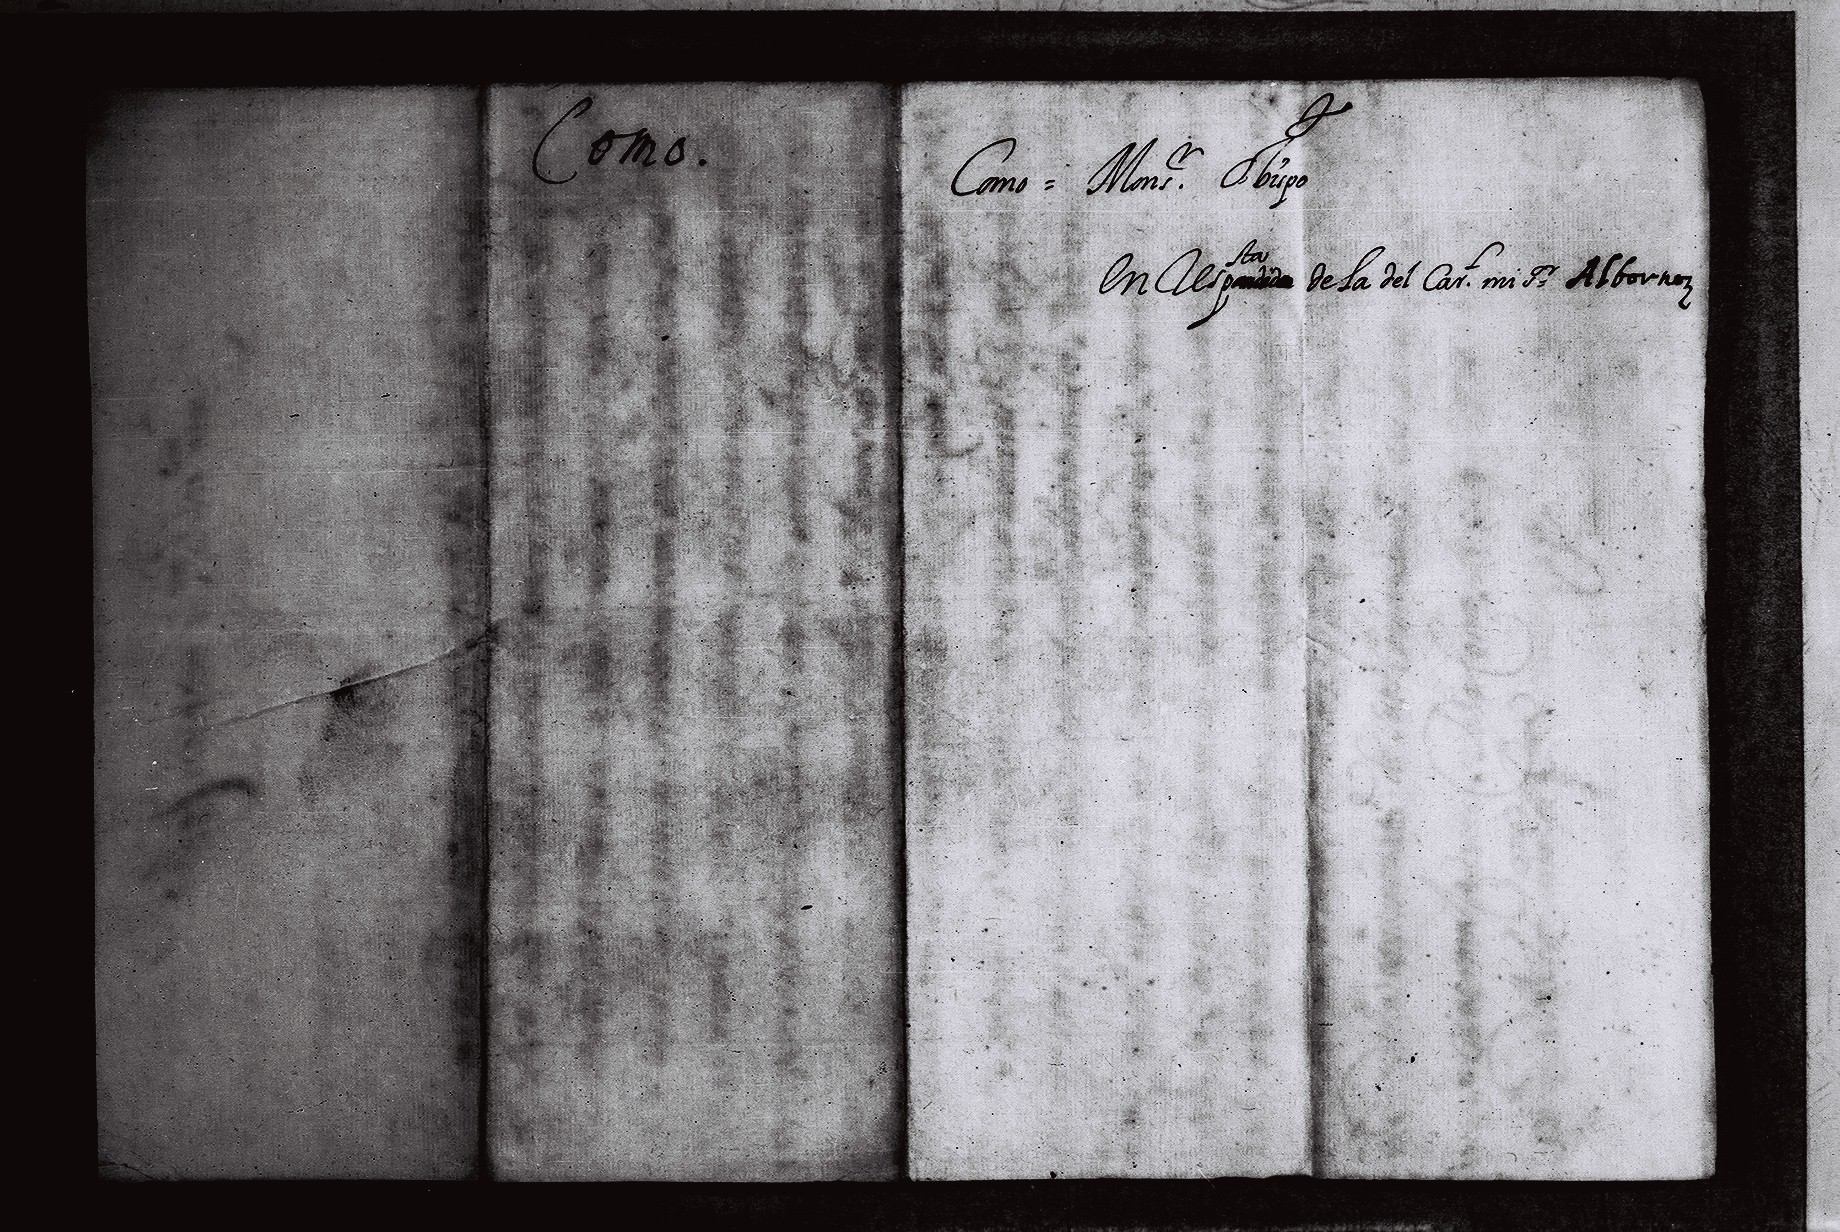 Como.
Como = Monsr. Obispo
En Respsta de la del Carl. mi Sr Albornoz